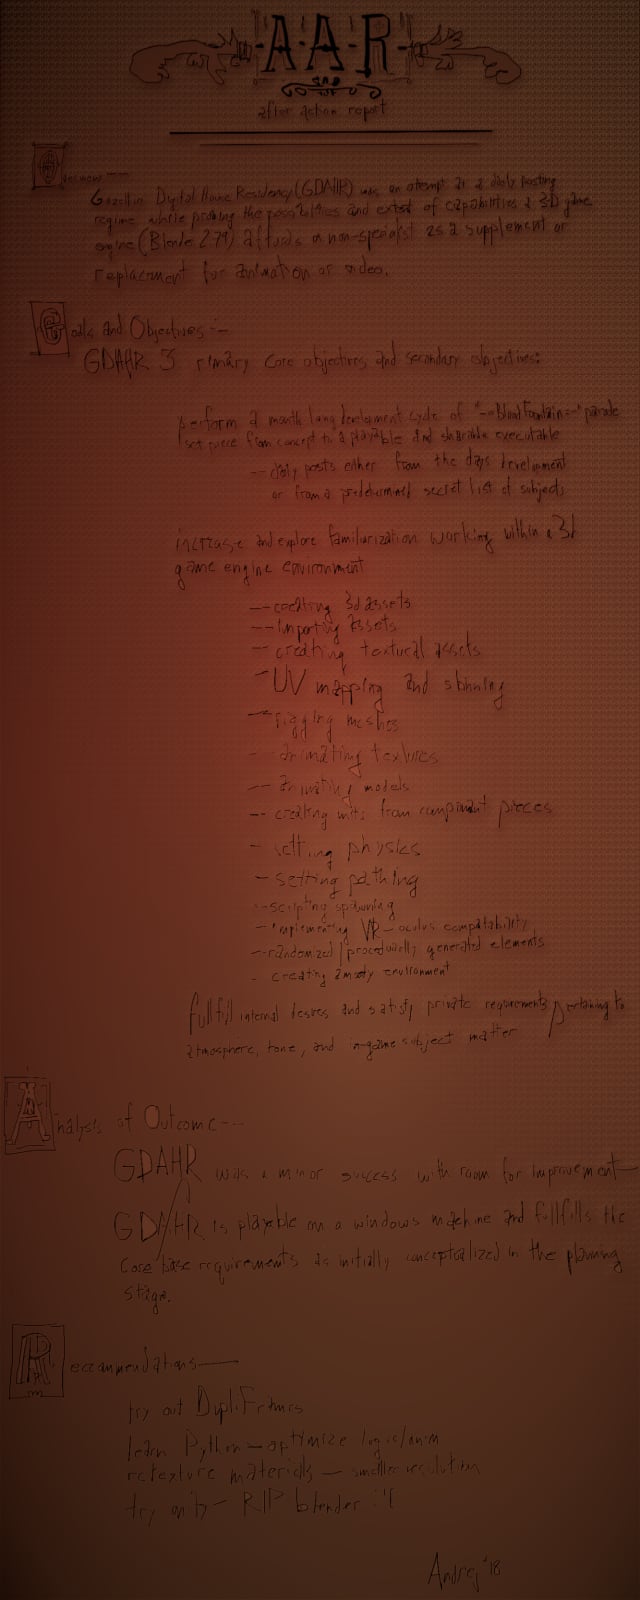 -A·A·R-
after action report
Overview --
Digital Home Residency (GDAHR) was an attempt at a daily posting
regime while probing the possibilities and extent of capabilities a 3D game
engine (Blender 2.79) affords a non-specialist as a supplement or
replacement for animation or video.
Goals and Objectives --
GDAHR 3 rimary core objectives, and secondary objectives:
perform a month long development cycle of "--Blood Fountain--" parade
set piece from concept to a playable and sharable executable
-- daily posts either from the days development
or from a predetermined secret list of subjects
increase and explore familiarization working within a 3d
game engine environment
-- creating 3d assets
-- importing assets
-- creating textural assets
-- UV mapping and skinning
-- rigging meshes
-- animating textures
-- animating models
-- creating units from component pieces
- setting physics
- setting pathing
-- scripting spawning
- implementing VR - oculus compatability
-- randomized/procedurally generated elements
- creating a moody environment
fullfill internal desires and satisfy private requirements pertaining to
atmosphere, tone, and in-game subject matter
Analysis of Outcome --
GDAHR was a minor success with room for improvement—
GDAHR is playable on a windows machine and fullfills the
core base requirements as initially conceptualized in the planning
stage.
Recommendations——
try out DupliFrames
learn Python - optimize logic/anim
retexture materials - smaller resolution
try unity - RIP blender :'(
Andrej '18